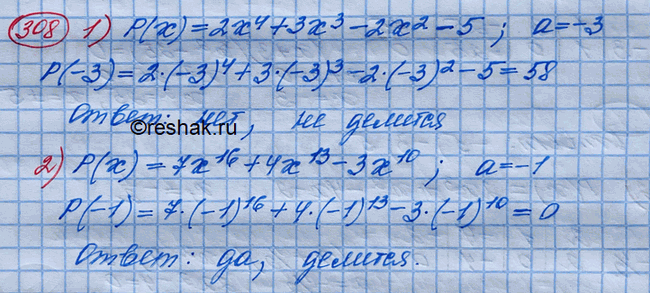 308 1) P(x) = 2x⁴ + 3x³ - 2x² - 5 ; a = -3
P(-3) = 2·(-3)⁴ + 3·(-3)³ - 2·(-3)² - 5 = 58
Ответ: нет, не делится
©reshak.ru
2) P(x) = 7x¹⁶ + 4x¹³ - 3x¹⁰ ; a = -1
P(-1) = 7·(-1)¹⁶ + 4·(-1)¹³ - 3·(-1)¹⁰ = 0
Ответ: да, делится.